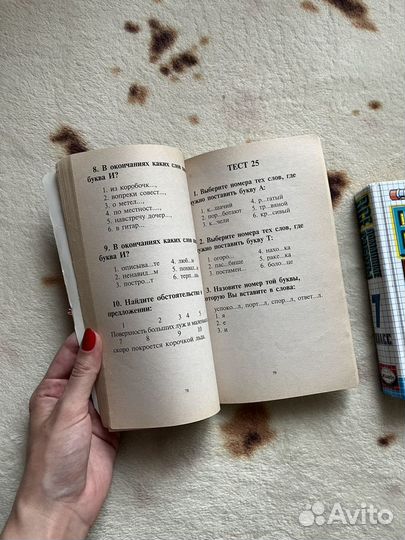 8. В окончаниях каких слов
буква И?
1. из коробочк...,
2. вопреки совест...,
3. о метел...,
4. по местност...,
5. навстречу дочер...,
6. в гитар...,
9. В окончаниях каких
буква И?
1. описыва...те
2. ненавид...м
3. постро...т
4. люб...
5. повяз...
6. терп...
10. Найдите обстоятельства
предложении:
1 2 3 4 5
Поверхность больших луж и
7 8 9 10
скоро покроется корочкой льда.
78
ТЕСТ 25
1. Выберите номера тех слов, где
нужно поставить букву А:
1. к...шачий
2. пор...ботают
3. к...чели
4. р...гатый
5. тр...вяной
6. кр...сивый
2. Выберите номера тех слов, где
нужно поставить букву Т:
1. огоро...
2. пас...бище
3. постамен...
4. нахо...ка
5. раке...ка
6. боло...це
3. Назовите номер той буквы,
которую Вы вставите в слова:
успоко...л, порт...л, спор...л, ответ...л.
1. я
2. е
3. и
79
7
КЛАСС
Avito